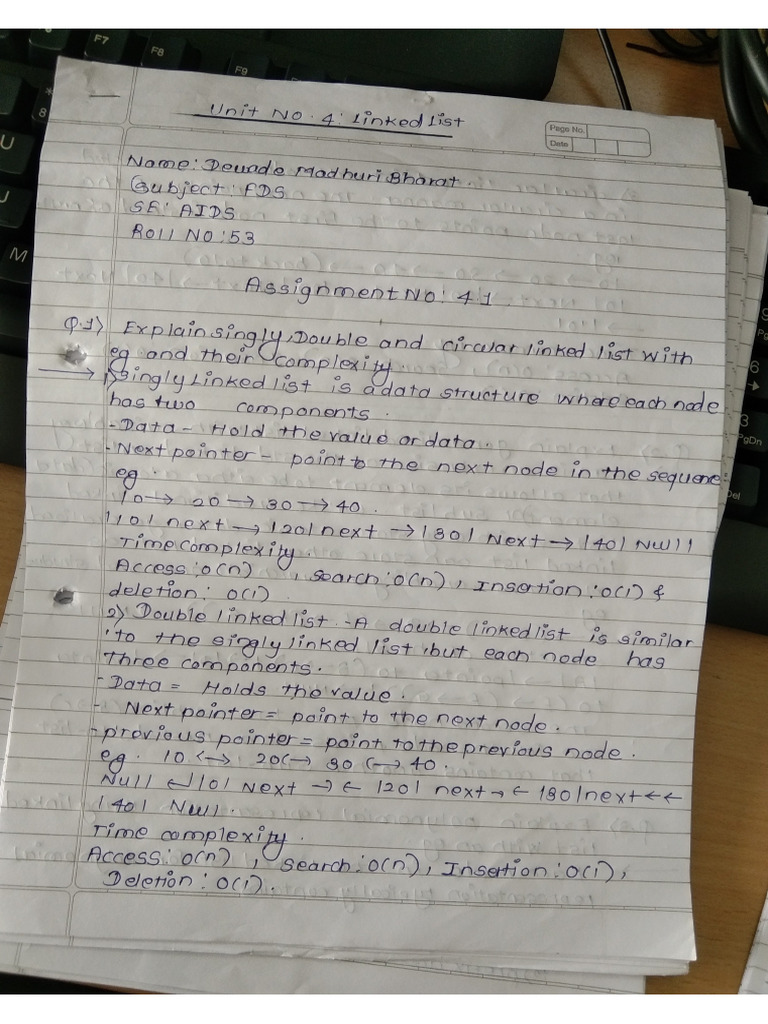 Unit No. 4: Linked List
Page No.
Date
Name: Devade Madhuri Bharat.
Subject: FDS
SE: AIDS
Roll No: 53
Assignment No: 4.1.
Q.1) Explain singly, Double and circular linked list with
eg and their complexity.
→ 1) Singly Linked list is a data structure where each node
has two components.
- Data - Hold the value or data.
- Next pointer - point to the next node in the sequence.
eg.
10 → 20 → 30 → 40.
|10| next → |20| next → |30| Next → |40| Null
Time complexity.
Access: O(n), search: O(n), Insertion: O(1) &
deletion: O(1)
2) Double linked list. - A double linked list is similar
to the singly linked list, but each node has
three components.
- Data = Holds the value.
- Next pointer = point to the next node.
- previous pointer = point to the previous node.
eg. 10 <-> 20 <-> 30 <-> 40.
Null ↵ |10| Next → ← |20| next → ← |30| next ← ←
|40| Null.
Time complexity.
Access: O(n), search: O(n), Insertion: O(1),
Deletion: O(1).
F7
F8
F9
8
U
U
M
9
6
3
PgDn
Del